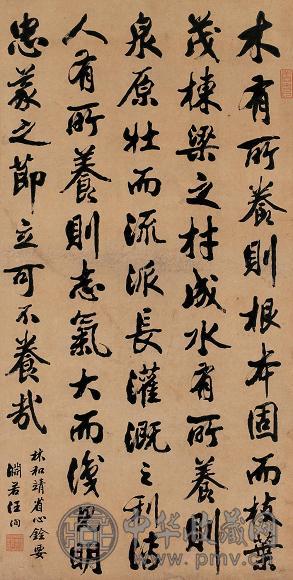 木有所養則根本固而枝葉
茂棟梁之材成水有所養則
泉原壯而流派長灌溉之利溥
人有所養則志氣大而識見明
忠義之節立可不養哉
林和靖省心銓要
淵若汪洵
中华收藏网